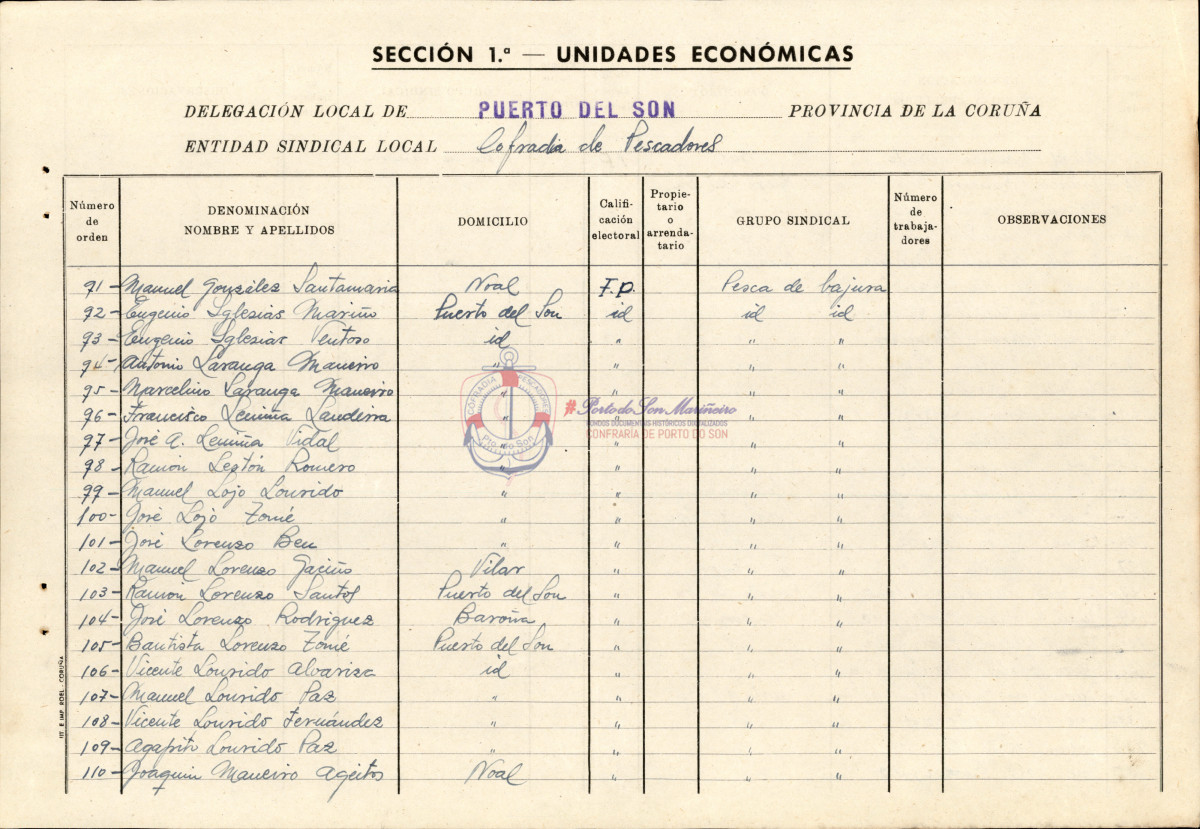 SECCIÓN 1.ª — UNIDADES ECONÓMICAS
DELEGACIÓN LOCAL DE PUERTO DEL SON PROVINCIA DE LA CORUÑA
ENTIDAD SINDICAL LOCAL Cofradia de Pescadores
Número de orden DENOMINACIÓN NOMBRE Y APELLIDOS DOMICILIO Califi-cación electoral Propie-tario o arrenda-tario GRUPO SINDICAL Número de trabaja-dores OBSERVACIONES
91- Manuel González Santamaria Noal F.p. Pesca de bajura
92- Eugenio Iglesias Mariño Puerto del Son id id id
93- Eugenio Iglesias Ventoso id " " "
94- Antonio Laranga Maneiro " " " "
95- Marcelino Laranga Maneiro " " " "
96- Francisco Lemiña Landeira " " " "
97- José A. Lemiña Vidal " " " "
98- Ramón Lestón Romero " " " "
99- Manuel Lojo Lourido " " " "
100- José Lojo Tomé " " " "
101- José Lorenzo Ben " " " "
102- Manuel Lorenzo Gaciño Vilar " " "
103- Ramón Lorenzo Santos Puerto del Son " " "
104- José Lorenzo Rodriguez Baroña " " "
105- Bautista Lorenzo Tomé Puerto del Son " " "
106- Vicente Lourido Alvariza id " " "
107- Manuel Lourido Paz " " " "
108- Vicente Lourido Fernández " " " "
109- Agapito Lourido Paz " " " "
110- Joaquin Maneiro Ageitos Noal " " "
COFRADIA PESCADORES
Pto. do Son
#PortodoSonMariñeiro
FONDOS DOCUMENTAIS HISTÓRICOS DIXITALIZADOS
CONFRARÍA DE PORTO DO SON
IMP. ROEL - CORUÑA